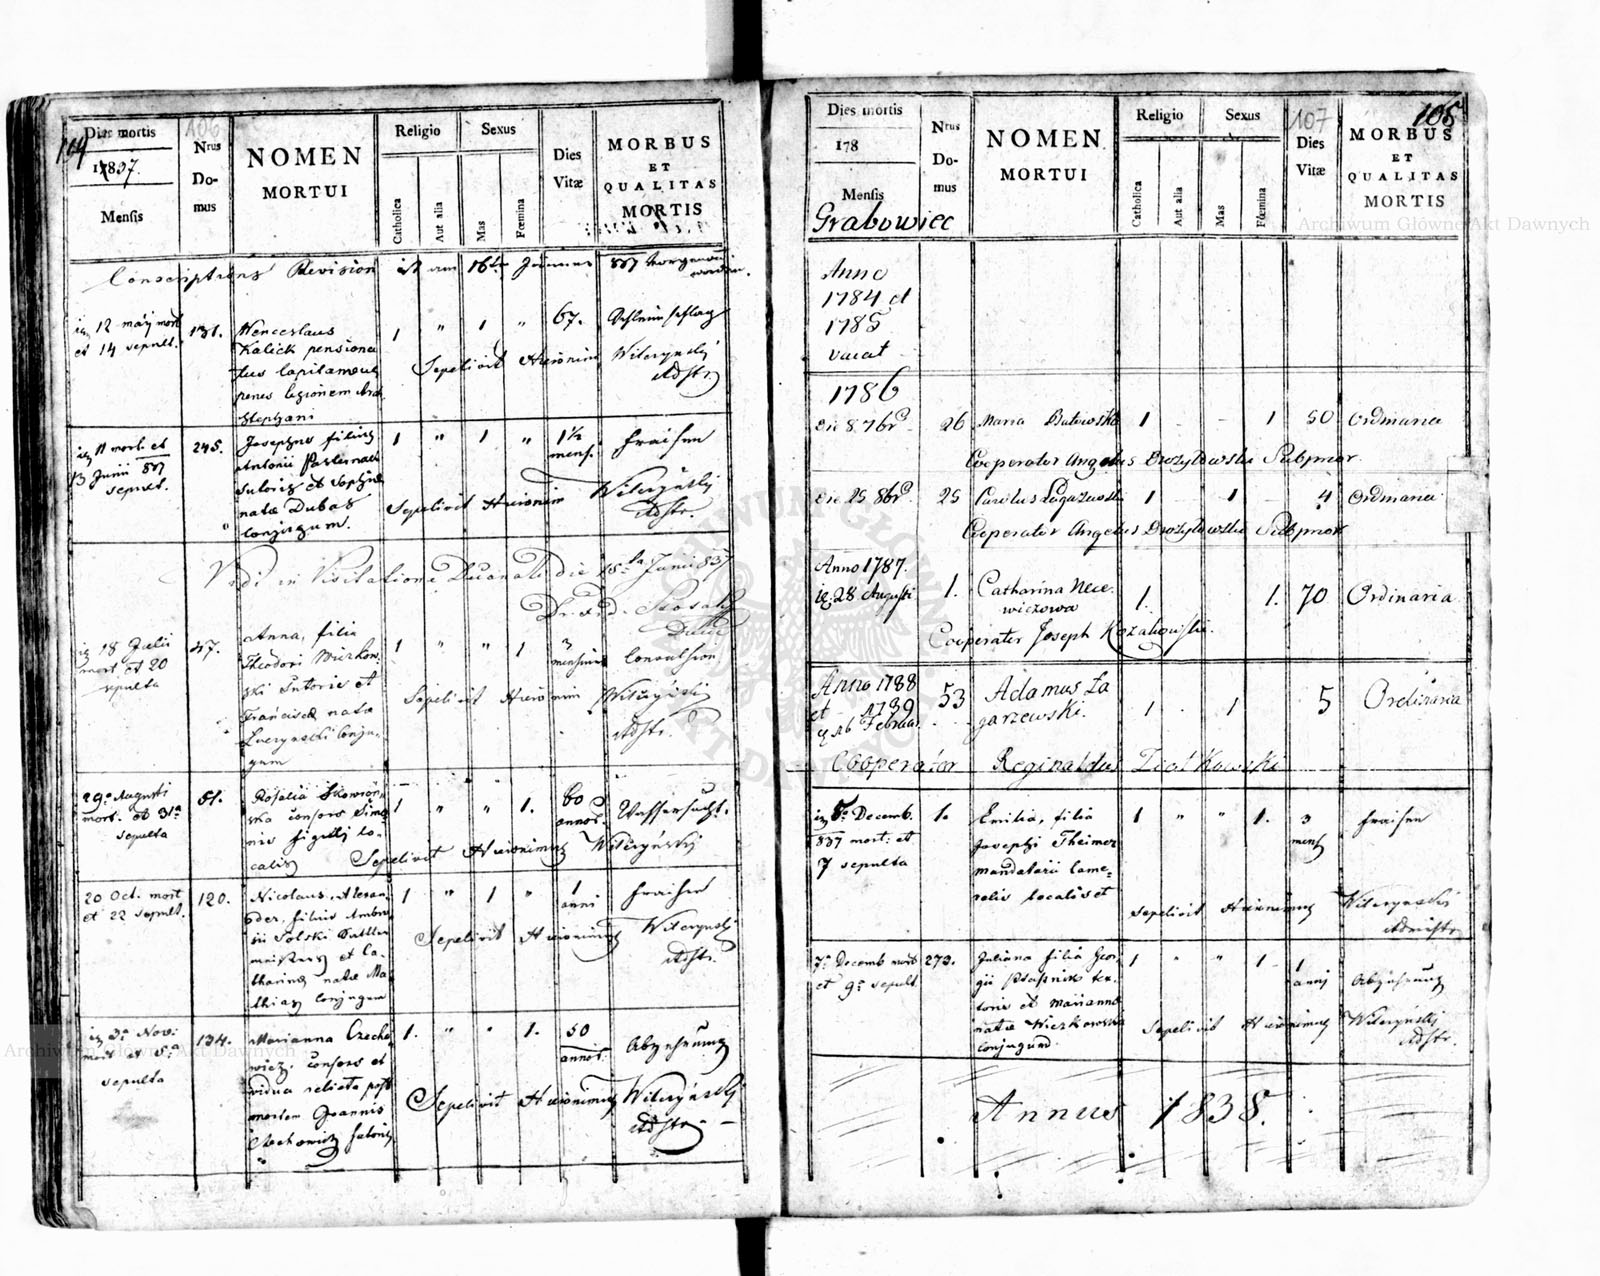 104
106
Dies mortis
1837.
Mensis
Nrus
Do-
mus
NOMEN
MORTUI
Religio
Sexus
Catholica
Aut alia
Mas
Fœmina
Dies
Vitæ
MORBUS
ET
QUALITAS
MORTIS
Conscriptions Revision ist am 16ten Jänner 837 vorgenommen
worden.
12 maij mort
et 14 sepult.
131.
Wenceslaus
Kalick pensiona
tus Capitaneus
penes legionem Arch
Stephani
1 " 1 "
67.
Schleimschlag
Sepelivit Hieronim Witczyński
Adstr.
11 mort. et
13 Junii 837
sepult.
245.
Josephus filius
Antonii Pasternak
sutoris et Sophiæ
natæ Dubas
Conjugum.
1 " 1 "
1½
mens.
Fraisen
Sepelivit Hieronim Witczyński
Adstr.
Vidi in Visitatione Decanali die 15ta Junii 837
18 Julii
mort. et 20
sepulta
47.
Anna, filia
Theodori Wiczkow
ski Sutoris et
Franciscæ natæ
Conju-
gum
1 " " 1
3
mensium
Convulsion
Sepelivit Hieronim Witczyński
Adstr.
29a Augusti
mort. et 31a
sepulta
51.
Rosalia Skowroń
ska consors Simo
nis figuli lo-
calis
1 " " 1.
60
annor.
Wassersucht.
Sepelivit Hieronimus Witczyński
20 Oct. mort
et 22 sepult.
120.
Nicolaus, Alexan
der, filius Ambro
sii Solski Sattler
meisters et Ca-
tharinæ natæ Ma
thias Conjugum
1 " 1 "
1
anni
Fraisen
Sepelivit Hieronimus Witczyński
Adstr.
3a Nov:
mort et 5a
sepulta
134.
Marianna Czecho
wicz, consors et
vidua relicta post
mortem Joannis
Czechowicz sutoris
1. " " 1.
50
annor.
Abzehrung
Sepelivit Hieronimus Witczyński
Adstr.
105
107
Dies mortis
178
Mensis
Grabowiec
Nrus
Do-
mus
NOMEN
MORTUI
Religio
Sexus
Catholica
Aut alia
Mas
Fœmina
Dies
Vitæ
MORBUS
ET
QUALITAS
MORTIS
Anno
1784 et
1785
vacat
1786
Die 8. 7br
26
Maria Butowska
1 1 50 Ordinaria
Cooperator Angelus Drozytowski Subprior.
Die 25 8br
25
Carolus Łagazewski
1 1 4 Ordinaria
Cooperator Angelus Drozytowski Subprior
Anno 1787.
28 Augusti
1.
Catharina Nece-
wiczowa
1. 1. 70 Ordinaria
Cooperator Joseph Kozakowski.
Anno 1788
et 1789
16 Februar.
53
Adamus Ła
garzewski.
1 1 5 Ordinaria
Cooperator Reginaldus Ziotkowski
5a Decemb.
837 mort: et
7 sepulta
1.
Emilia, filia
Josephi Theimer
mandatarii Came-
ralis localis et
1 " " 1.
3
mens
Fraisen
Sepelivit Hieronimus Witczyński
Adminstr.
7a Decemb mort
et 9a sepult.
273.
Juliana filia Geor-
gii Ptasznik tex-
toris et Mariannæ
natæ Wiczkowska
Conjugum.
1 " " 1
1
anni
Abzehrung
Sepelivit Hieronimus Witczyński
Adstr.
Annus 1838.
Archiwum Główne Akt Dawnych
Archiwum Główne Akt Dawnych
ARCHIWUM GŁÓWNE AKT DAWNYCH